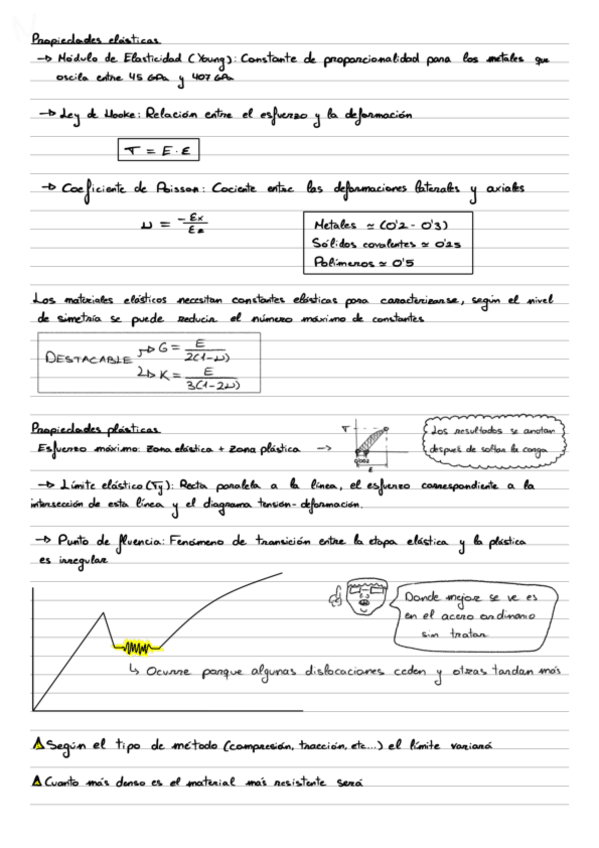 Propiedades elásticas
→ Módulo de Elasticidad (Young): Constante de proporcionalidad para los metales que
oscila entre 45 GPa y 407 GPa
→ Ley de Hooke: Relación entre el esfuerzo y la deformación
T = E · ε
→ Coeficiente de Poisson: Cociente entre las deformaciones laterales y axiales
ν = -εx / εz
Metales ≃ (0'2 - 0'3)
Sólidos covalentes ≃ 0'25
Polímeros ≃ 0'5
Los materiales elásticos necesitan constantes elásticas para caracterizarse, según el nivel
de simetría se puede reducir el número máximo de constantes
DESTACABLE
G = E / 2(1-ν)
K = E / 3(1-2ν)
Propiedades plásticas
Esfuerzo máximo: Zona elástica + Zona plástica →
T
0'002
ε
Los resultados se anotan
después de soltar la carga
→ Límite elástico (Ty): Recta paralela a la línea, el esfuerzo correspondiente a la
intersección de esta línea y el diagrama tensión-deformación.
→ Punto de fluencia: Fenómeno de transición entre la etapa elástica y la plástica
es irregular
Donde mejor se ve es
en el acero ordinario
sin tratar
↳ Ocurre porque algunas dislocaciones ceden y otras tardan más
Según el tipo de método (compresión, tracción, etc...) el límite variará
Cuanto más denso es el material más resistente será